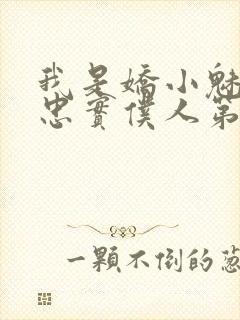 我是嬌小魅
忠實僕人第
一顆不倒的蔥